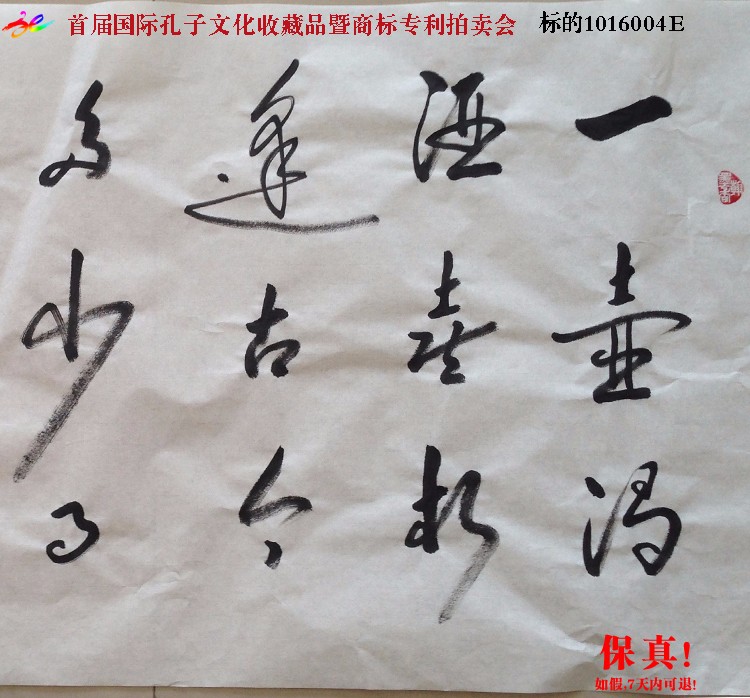 首届国际孔子文化收藏品暨商标专利拍卖会 标的1016004E
一壺濁
酒喜相
逢古今
多少事
保真!
如假,7天内可退!